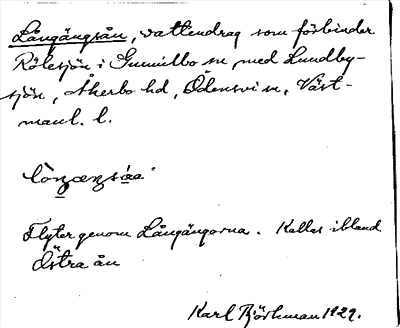 Långängsån, vattendrag som förbinder
Rölesjön i Gunnilbo sn med Lundby-
sjön, Åkerbo hd, Odensvi sn, Väst-
manl. l.
Flyter genom Långängarna. Kallas ibland
Östra ån
Karl Björkman 1929.